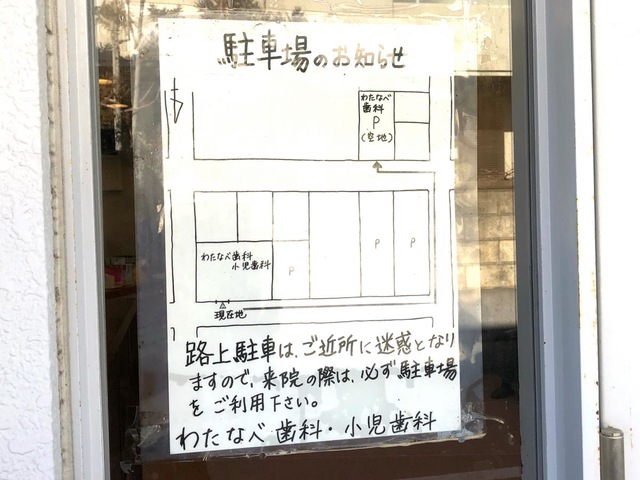 駐車場のお知らせ
わたなべ
歯科
P
(空地)
わたなべ歯科
小児歯科
P
P
P
現在地
路上駐車は、ご近所に迷惑となり
ますので、来院の際は、必ず駐車場
をご利用下さい。
わたなべ歯科・小児歯科